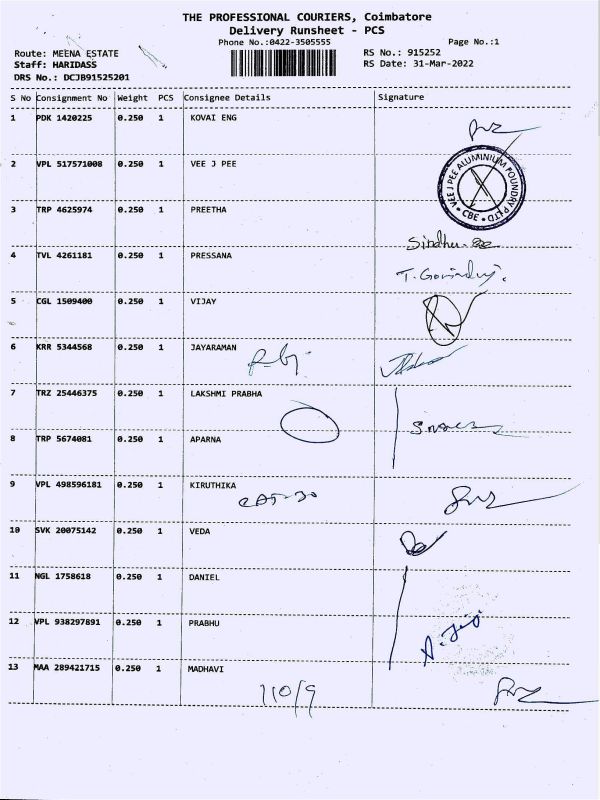 THE PROFESSIONAL COURIERS, Coimbatore
Delivery Runsheet - PCS
Phone No.:0422-3505555
Page No.:1
Route: MEENA ESTATE
RS No.: 915252
Staff: HARIDASS
RS Date: 31-Mar-2022
DRS No.: DCJB91525201
S No Consignment No Weight PCS Consignee Details Signature
1 PDK 1420225 0.250 1 KOVAI ENG
2 VPL 517571008 0.250 1 VEE J PEE
VEE J PEE ALUMINIUM FOUNDRY P LTD CBE
3 TRP 4625974 0.250 1 PREETHA
Sindhu
4 TVL 4261181 0.250 1 PRESSANA
5 CGL 1509400 0.250 1 VIJAY
6 KRR 5344568 0.250 1 JAYARAMAN
7 TRZ 25446375 0.250 1 LAKSHMI PRABHA
8 TRP 5674081 0.250 1 APARNA
9 VPL 498596181 0.250 1 KIRUTHIKA
10 SVK 20075142 0.250 1 VEDA
11 NGL 1758618 0.250 1 DANIEL
12 VPL 938297891 0.250 1 PRABHU
13 MAA 289421715 0.250 1 MADHAVI
110/9